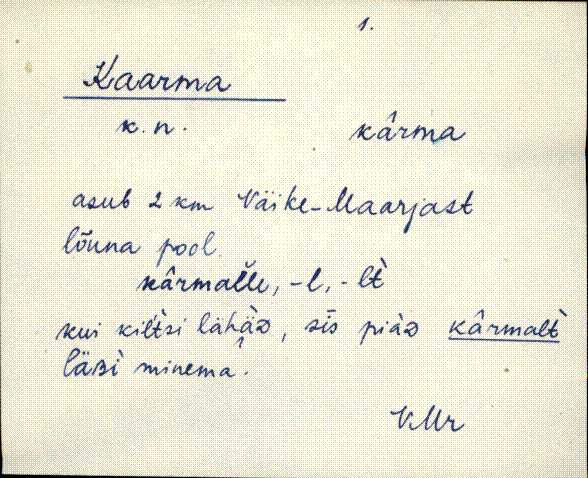 1.
Kaarma
k. n. kârma
asub 2 km Väike-Maarjast
lõuna pool
kârmal̆le, -l, -lt̀
kui kilt̀si lähäᴅ, sīs piäᴅ kârmalt̀
läʙi minema.
VMr